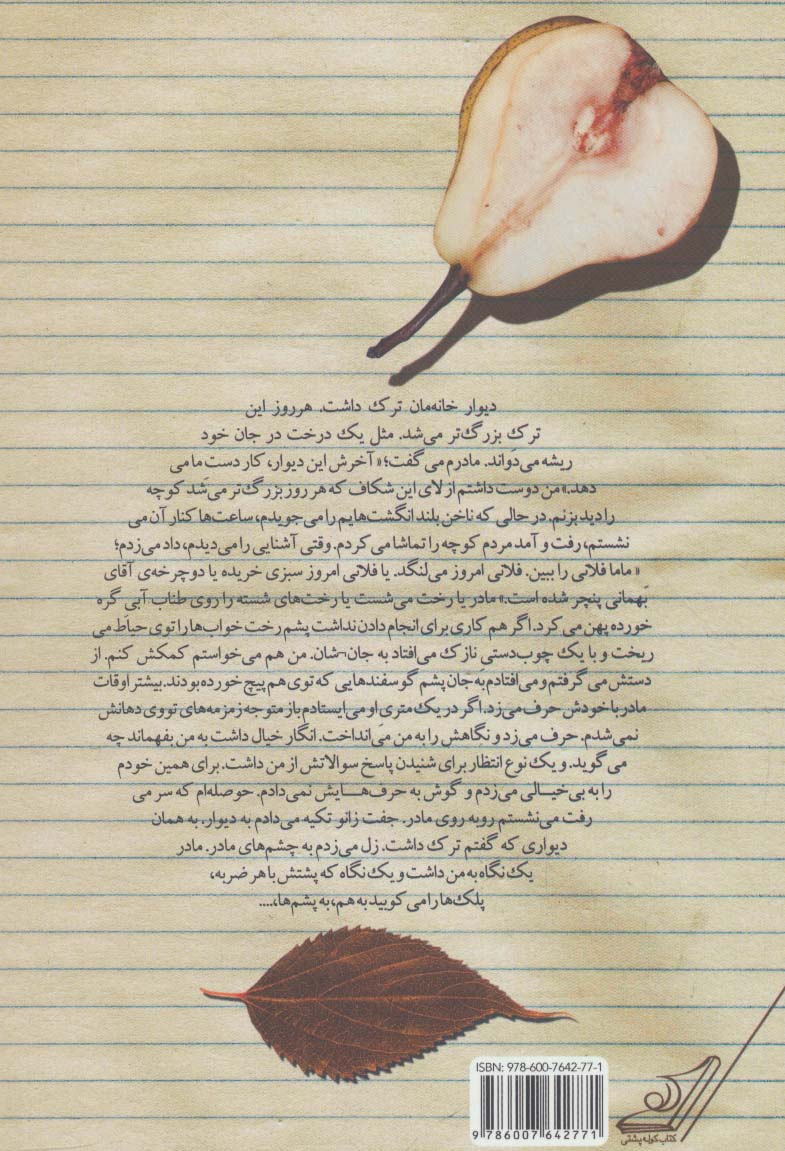 دیوار خانه‌مان ترک داشت. هرروز این
ترک بزرگ‌تر می‌شد. مثل یک درخت در جان خود
ریشه می‌دَواند. مادرم می‌گفت؛« آخرش این دیوار، کار دست ما می
دهد.» من دوست داشتم از لای این شکاف که هر روز بزرگ‌تر می‌شد کوچه
را دید بزنم. در حالی که ناخن بلند انگشت‌هایم را می‌جویدم، ساعت‌ها کنار آن می
نشستم، رفت و آمد مردم کوچه را تماشا می‌کردم. وقتی آشنایی را می‌دیدم، داد می‌زدم؛
« ماما فلانی را ببین. فلانی امروز می‌لنگد. یا فلانی امروز سبزی خریده یا دوچرخه‌ی آقای
بَهمانی پنچر شده است.» مادر یا رخت می‌شست یا رخت‌های شسته را روی طناب آبی گره
خورده پهن می‌کرد. اگر هم کاری برای انجام دادن نداشت پشم رخت خواب‌ها را توی حیاط می
ریخت و با یک چوب‌دستی نازک می‌افتاد به جان¬شان. من هم می‌خواستم کمکش کنم. از
دستش می‌گرفتم و می‌افتادم به جان پشم گوسفندهایی که توی هم پیچ خورده بودند. بیشتر اوقات
مادر با خودش حرف می‌زد. اگر در یک متری او می‌ایستادم باز متوجه زمزمه‌های تووی دهانش
نمی‌شدم. حرف می‌زد و نگاهش را به من می‌انداخت. انگار خیال داشت به من بفهماند چه
می‌گوید. و یک نوع انتظار برای شنیدن پاسخ سوالاتش از من داشت. برای همین خودم
را به بی‌خیالی می‌زدم و گوش به حرف‌هـــایش نمی‌دادم. حوصله‌ام که سر می
رفت می‌نشستم روبه روی مادر. جفت زانو تکیه می‌دادم به دیوار. به همان
دیواری که گفتم ترک داشت. زل می‌زدم به چشم‌های مادر. مادر
یک نگاه به من داشت و یک نگاه که پشتش با هر ضربه،
پلک‌ها را می‌کوبید به هم، به پشم‌ها،....
ISBN: 978-600-7642-77-1
9 786007 642771
کتاب کوله پشتی